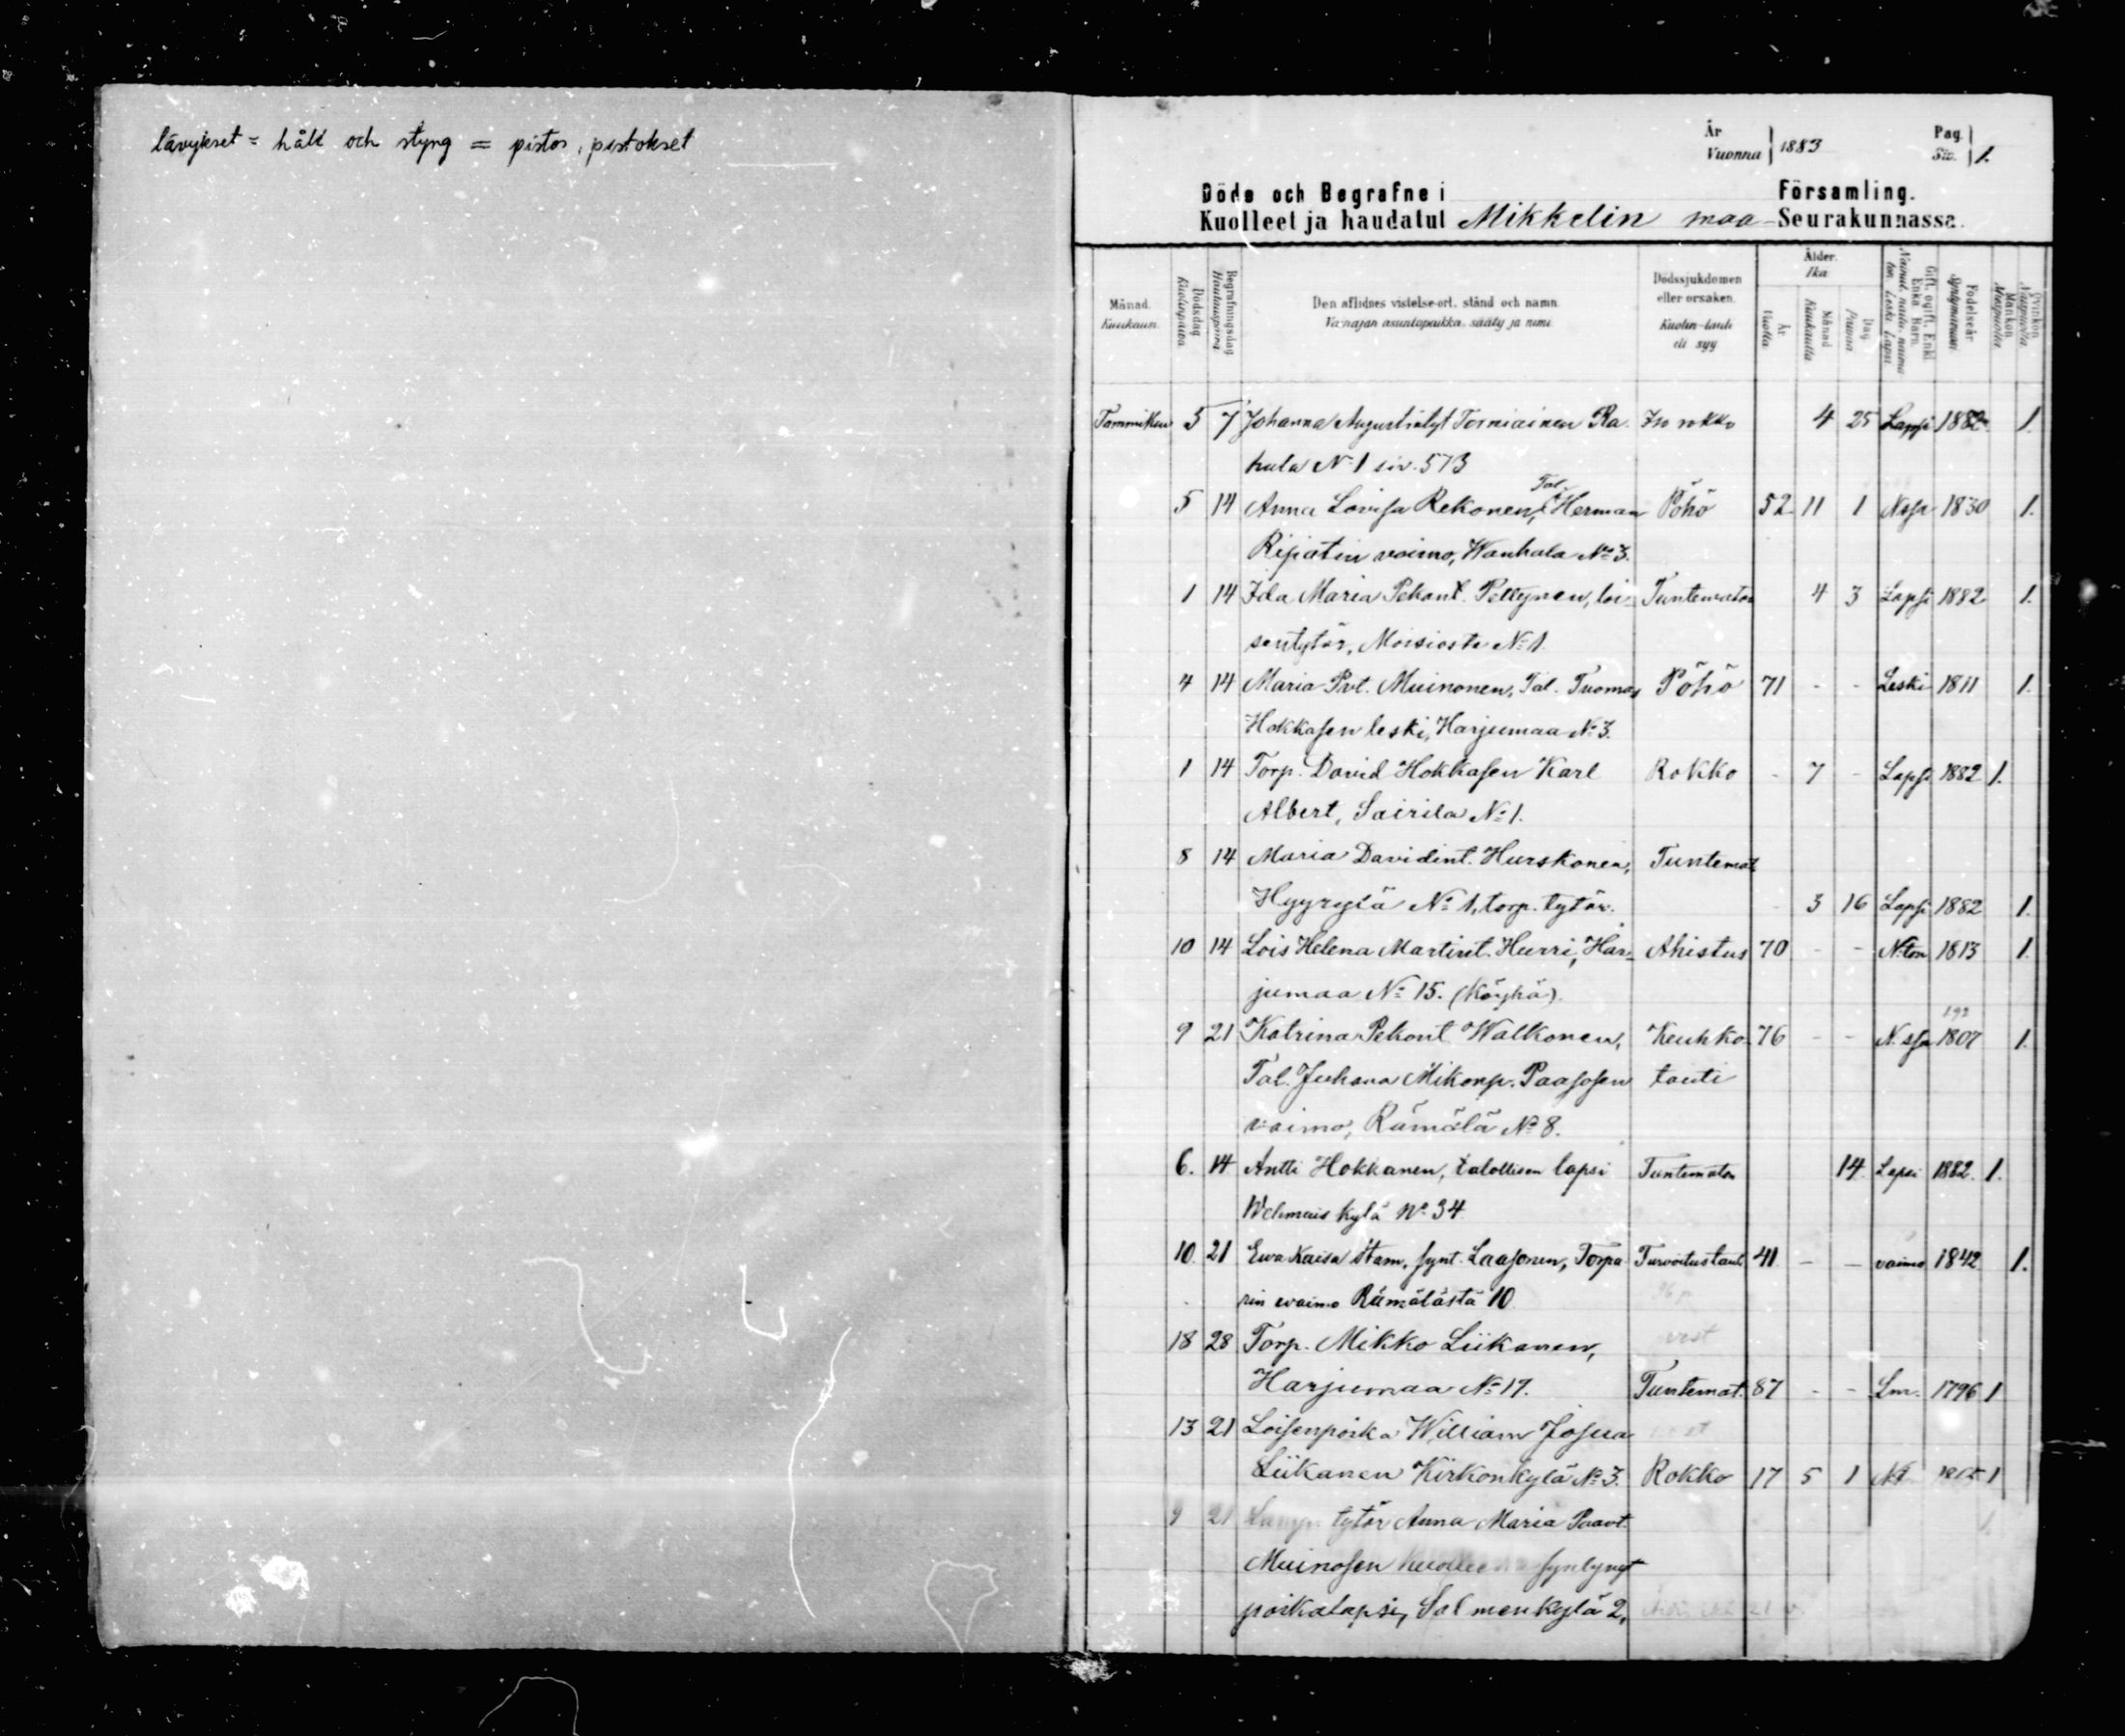 lävykset = håll och styng = pistos, pistokset
År
Vuonna 1883
Pag.
Siv. 1.
Döde och Begrafne i Församling.
Kuolleet ja haudatut Mikkelin maa-Seurakunnassa.
Månad.
Kuukaun
Dödsdag
Kuolopäivä
Begrafningsdag
Hautauspäivä
Den aflidnes vistelse-ort, stånd och namn.
Vainajan asuntopaikka, sääty ja nimi
Dödssjukdomen
eller orsaken.
Kuolin-tauti
eli syy
Ålder.
Ikä
År
Vuotta
Månad
Kuukautta
Dag
Päivää
Gift, ogift, Enkl.
Enka Barn.
Födelseår
Syntymävuosi
Mankön
Miespuolia
Qvinkön
Naispuolia
Tammikuu 5 7 Johanna Torniainen Ra Iso rokko 4 25 Lapsi 1882 1.
hula No 1 siv. 573
5 14 Anna Lovisa Rekonen, Tal. Herman Pöhö 52 11 1 Nssa 1830 1.
Ripatin vaimo, Wanhala No 3.
1 14 Ida Maria Pekant. Pellynen, loi- Tuntematon 4 3 Lapsi 1882 1.
sentytär, Moisiosta No 1.
4 14 Maria Pvt. Muinonen, Tal. Tuomas Pöhö 71 - - Leski 1811 1.
Hokkasen leski, Harjumaa No 3.
1 14 Torp. David Hokkasen Karl Rokko - 7 - Lapsi 1882 1.
Albert, Sairila No 1.
8 14 Maria Davidint. Hurskonen, Tuntemat
Hyyrylä No 1, torp. tytär. 3 16 Lapsi 1882 1.
10 14 Lois Helena Martint. Hurri, Har- Ahistus 70 - - N:ton 1813 1.
jumaa No 15. (Köyhä).
9 21 Katrina Pekant Walkonen, Keuhko 76 - - N. ssa 1807 1.
Tal. Juhana Mikonp. Paasosen tauti
vaimo, Rämälä No 8.
6. 14 Antti Hokkanen, talollisen lapsi Tuntematon 14 Lapsi 1882. 1.
Wehmais kylä No 34
10. 21 Ewa Kaisa Ham, synt. Laasonen, Torpa Turvoitustauti 41 - - vaimo 1842 1.
rin waimo Rämälästä 10
18 28 Torp. Mikko Liikanen,
Harjumaa No 17. Tuntemat. 87 - - Lm. 1796 1
13 21 Loisenpoika William Josua
Liikanen Kirkonkylä No 3. Rokko 17 5 1 Nt 1865 1
9 21 tytär Anna Maria Paavt.
Muinosen syntynyt
poikalapsi, Salmenkylä 2,